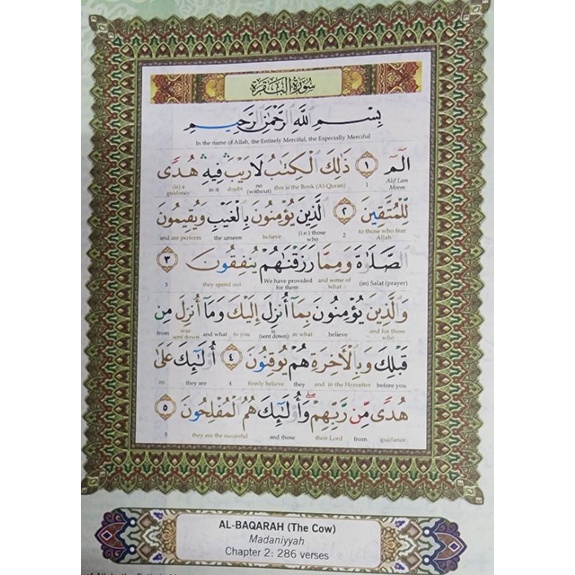 سُورَةُ الْبَقَرَةِ
بِسْمِ اللَّهِ الرَّحْمَٰنِ الرَّحِيمِ
In the name of Allah, the Entirely Merciful, the Especially Merciful
الٓمٓ ۝١ ذَٰلِكَ الْكِتَٰبُ لَا رَيْبَ ۛ فِيهِ ۛ هُدًى
Alif Lam Meem 1 this is the Book (Al-Quran) no (without) doubt in it (is) a guidance
لِّلْمُتَّقِينَ ۝٢ الَّذِينَ يُؤْمِنُونَ بِالْغَيْبِ وَيُقِيمُونَ
to those who fear Allah 2 (i.e.) those who believe the unseen and are perform
الصَّلَاةَ وَمِمَّا رَزَقْنَٰهُمْ يُنفِقُونَ ۝٣
(in) Salat (prayer) and some of what We have provided for them they spend out 3
وَالَّذِينَ يُؤْمِنُونَ بِمَا أُنزِلَ إِلَيْكَ وَمَا أُنزِلَ مِن
and for those who believe in what is (sent down) to you and what was sent down from
قَبْلِكَ وَبِالْآخِرَةِ هُمْ يُوقِنُونَ ۝٤ أُولَٰئِكَ عَلَىٰ
before you and in the Hereafter they firmly believe 4 they are on
هُدًى مِّن رَّبِّهِمْ ۖ وَأُولَٰئِكَ هُمُ الْمُفْلِحُونَ ۝٥
guidance from their Lord and those they are the successful 5
AL-BAQARAH (The Cow)
Madaniyyah
Chapter 2: 286 verses